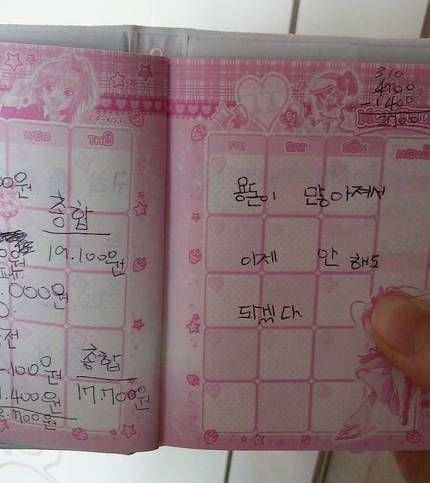 WED THU
00원
종합
19.100원
000원
전
100원
종합
.400원
17.700원
2.700원
FRI SAT SUN MEMO
3 10
4100
-1400
2700
용돈이 많아져서
이제 안 해도
되겠다